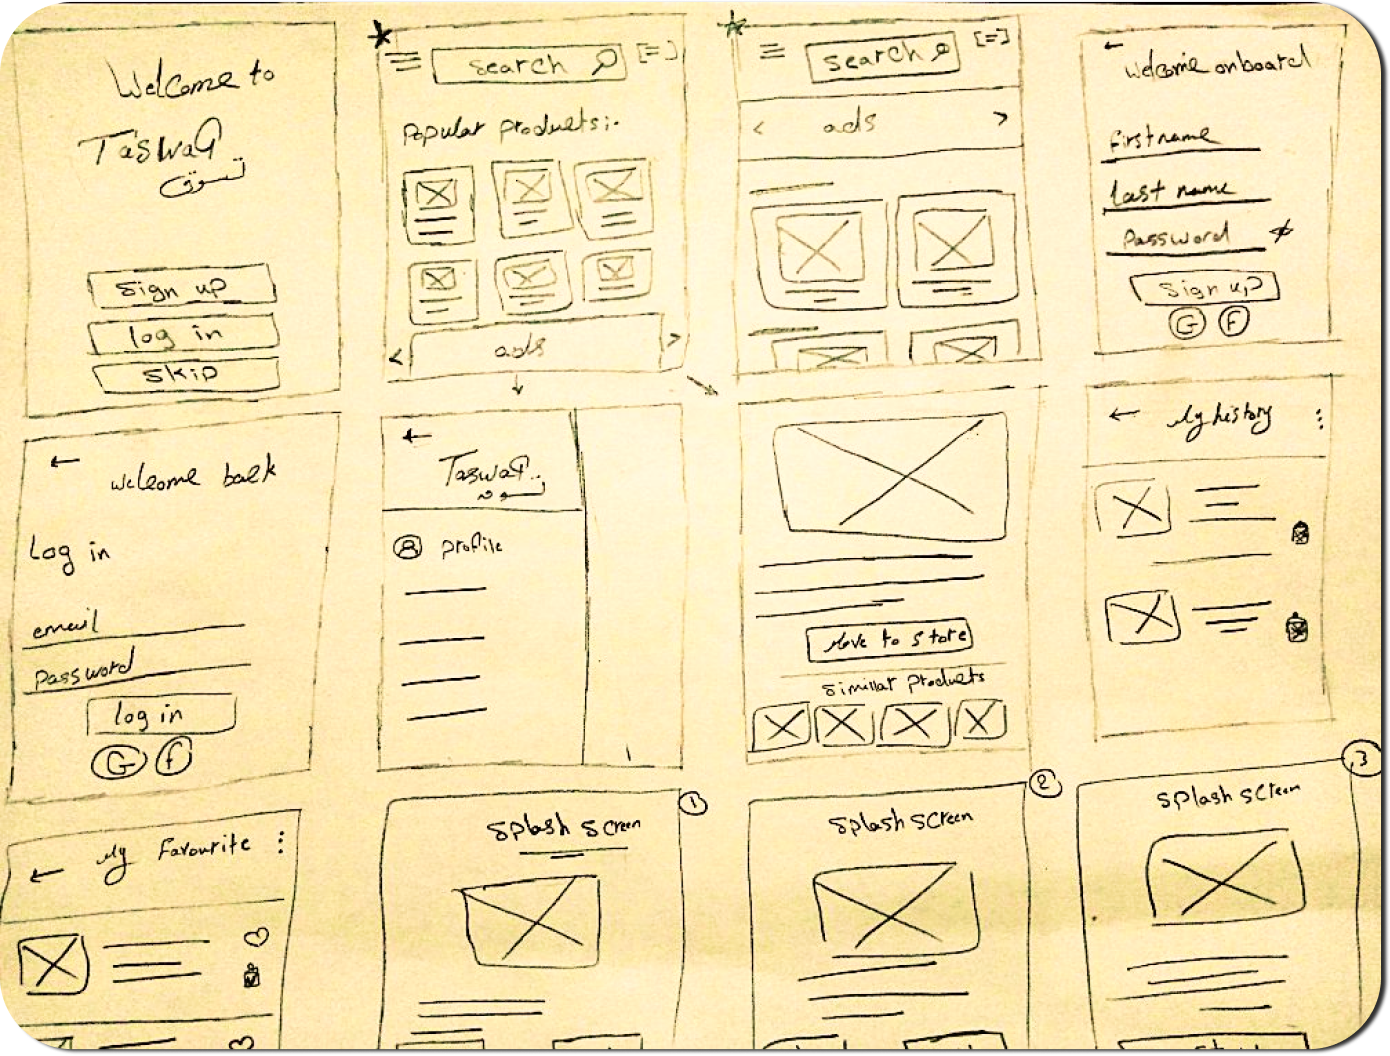 Welcome to
TaswaQ
تسوق
Sign up
log in
Skip
search
Popular Products:-
ads
search
ads
welcome onboard
firstname
last name
Password
Sign up
G F
welcome back
Log in
email
Password
log in
G F
TaswaQ
تسوق
Profile
Move to Store
Simillar Products
My history
My Favourite
1
Splash Screen
2
Splash Screen
3
Splash Screen